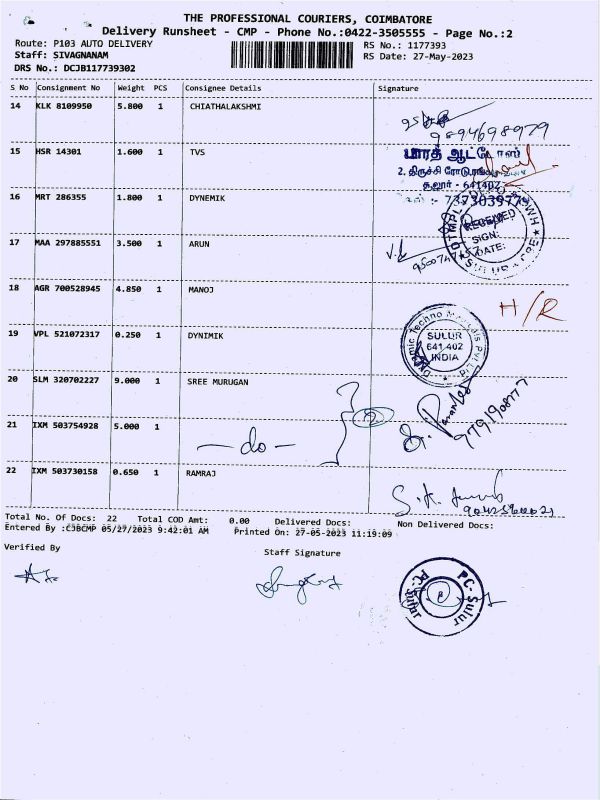 THE PROFESSIONAL COURIERS, COIMBATORE
Delivery Runsheet - CMP - Phone No.:0422-3505555 - Page No.:2
Route: P103 AUTO DELIVERY
RS No.: 1177393
Staff: SIVAGNANAM
RS Date: 27-May-2023
DRS No.: DCJB117739302
S No Consignment No Weight PCS Consignee Details Signature
14 KLK 8109950 5.800 1 CHIATHALAKSHMI
9894698979
15 HSR 14301 1.600 1 TVS
பாரத் ஆட்டோஸ்
2, திருச்சி ரோடு
சூலூர் - 641402
16 MRT 286355 1.800 1 DYNEMIK
RECEIVED
SIGN:
DATE:
SULUR
17 MAA 297885551 3.500 1 ARUN
18 AGR 700528945 4.850 1 MANOJ
H/R
19 VPL 521072317 0.250 1 DYNIMIK
SULUR
641 402
INDIA
20 SLM 320702227 9.000 1 SREE MURUGAN
9791908777
21 IXM 503754928 5.000 1
—do—
22 IXM 503730158 0.650 1 RAMRAJ
Total No. Of Docs: 22 Total COD Amt: 0.00 Delivered Docs: Non Delivered Docs:
Entered By :CJBCMP 05/27/2023 9:42:01 AM Printed On: 27-05-2023 11:19:09
Verified By
Staff Signature
PC-Sulur
PC-Sulur